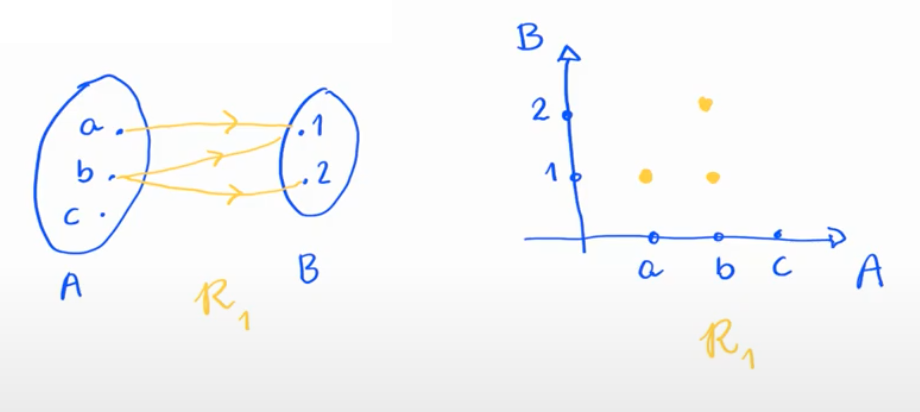 a
b
c
A
1
2
B
R₁
B
2
1
a b c A
R₁